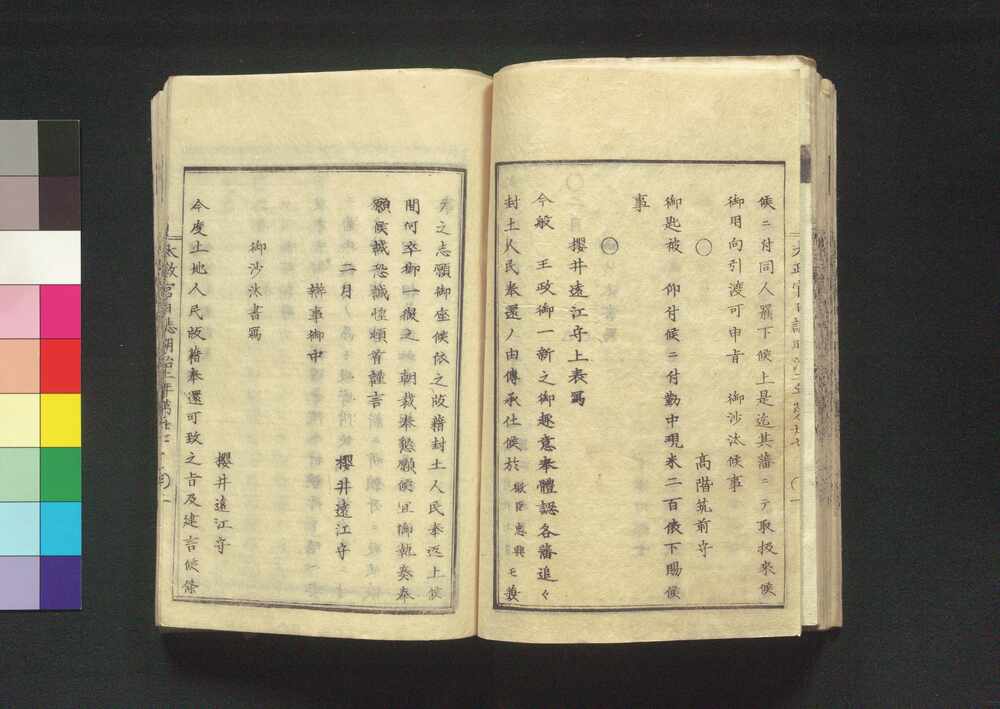 候ニ付同人羅下候上是迄其藩ニテ取扱來候
御用向引渡可申旨　御沙汰候事
〇
高階筑前守
御匙被　仰付候ニ付勤中現米二百俵下賜候
事
〇
櫻井遠江守上表寫
今般　王政御一新之御趣意奉體認各藩追々
封土人民奉還ノ由傳承仕候於　微臣忠興モ兼
天之志願御座候依之版籍封土人民奉返上候
間何卒御一視之　朝裁奉懇願候宜御執奏奉
願候誠恐誠惶頓首謹言
二月
櫻井遠江守
辨事御中
御沙汰書寫
櫻井遠江守
今度土地人民版籍奉還可致之旨及建言候條
太政官日誌明治二年